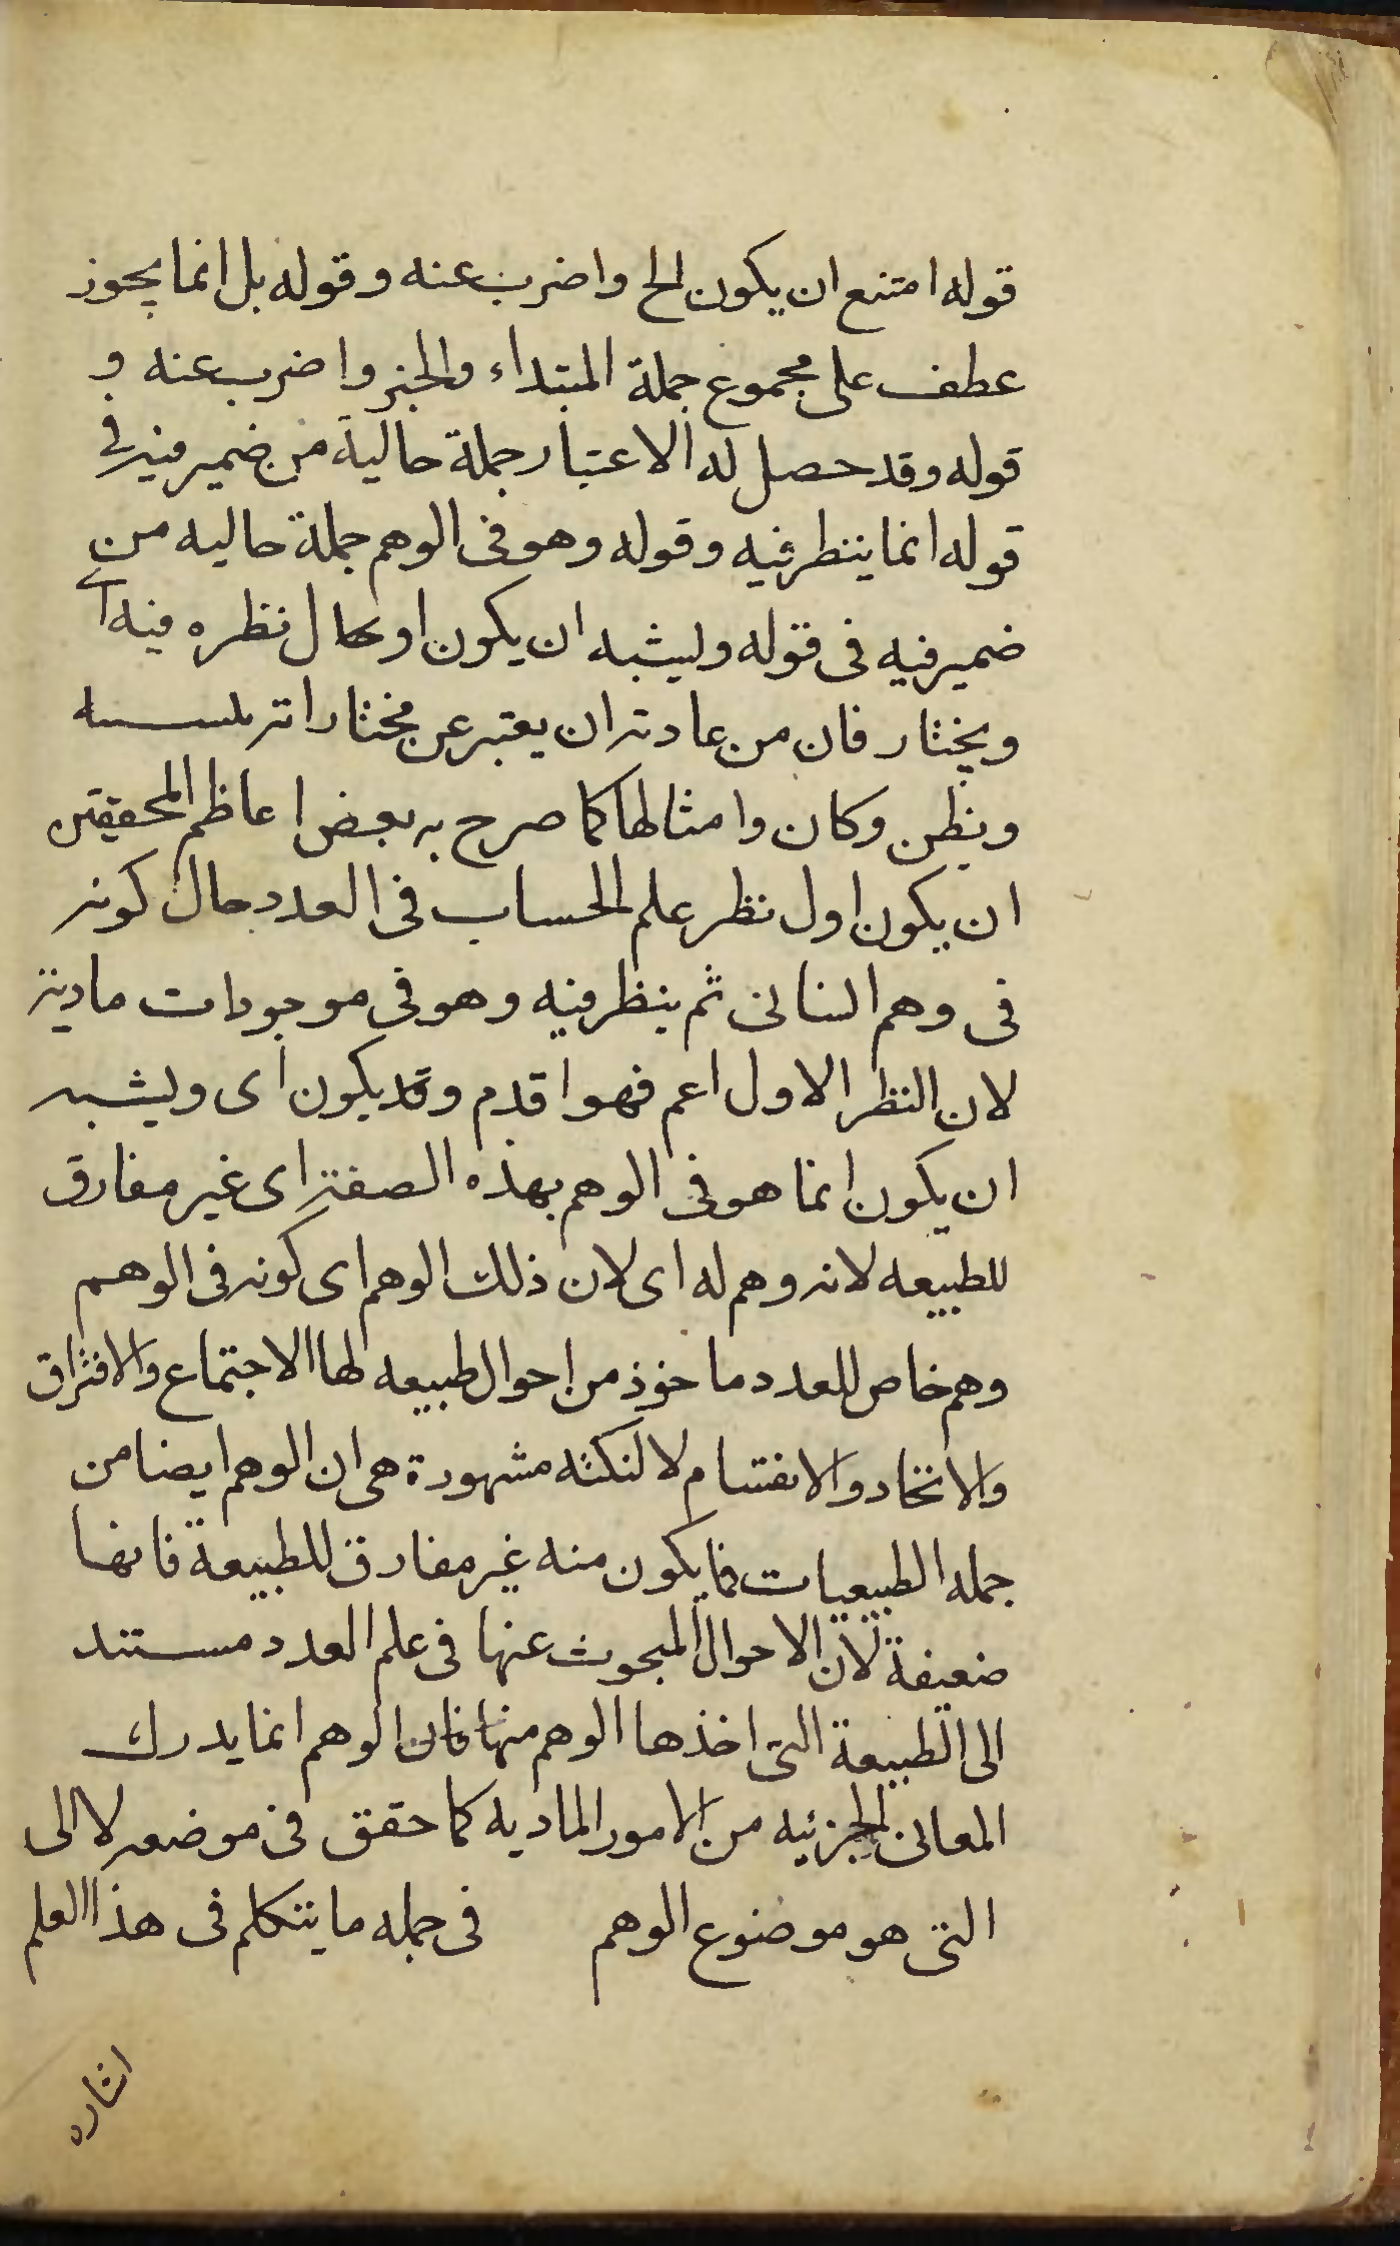 قوله امتنع ان يكون الخ واضرب عنه وقوله بل انما يجوز
عطف على مجموع جملة المبتداء والخبر واضرب عنه و
قوله وقد حصل له الاعتبار جملة حالية من ضمير فيه في
قوله انما ينظر فيه وقوله وهو فى الوهم جملة حاليه من
ضمير فيه فى قوله وليشبه ان يكون اول حال نظره فيه اى
ويختار فان من عادته ان يعتبر عن مختاراته بليشبه
ويظن وكان وامثالها كما صرح به بعض اعاظم المحققين
ان يكون اول نظر علم الحساب فى العدد حال كونه
فى وهم الناس ثم ينظر فيه وهو فى موجودات مادية
لان النظر الاول اعم فهو اقدم وقد يكون اى ويشبه
ان يكون انما هو فى الوهم بهذه الصفة اى غير مفارق
للطبيعه لانه وهم له اى لان ذلك الوهم اى كونه فى الوهم
وهم خاص للعدد ماخوذ من احوال طبيعه لها الاجتماع والافتراق
والاتحاد والانقسام لا لنكته مشهورة هى ان الوهم ايضا من
جمله الطبيعيات فما يكون منه غير مفارق للطبيعة فانها
ضعيفة لان الاحوال المبحوث عنها فى علم العدد مستند
الى الطبيعة التى اخذها الوهم منها فان الوهم انما يدرك
المعانى الجزئيه من الامور الماديه كما حقق فى موضعه لا الى
التى هو موضوع الوهم فى جمله ما يتكلم فى هذا العلم
اشاره